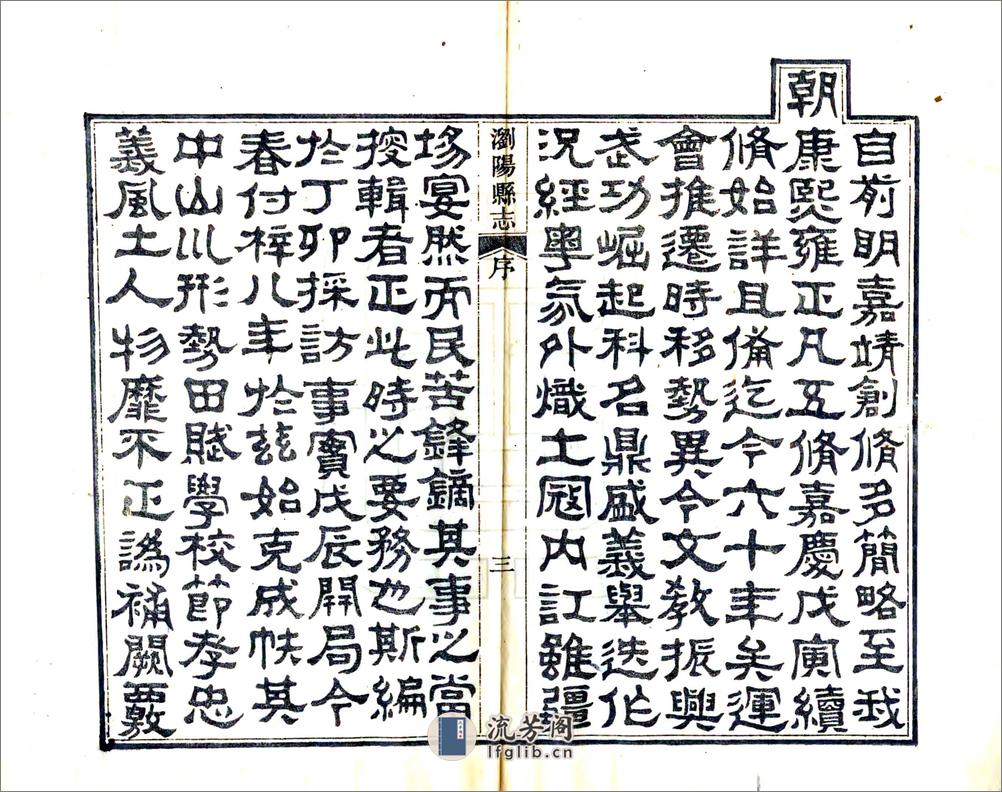 自前明嘉靖創脩多簡略至我
朝
康熙雍正凡五脩嘉慶戊寅續
脩始詳且備迄今六十年矣運
會推遷時移勢異今文教振興
武功崛起科名鼎盛義舉迭作
況經粵氛外熾土寇內訌雖疆
瀏陽縣志 序 三
場宴然而民苦鋒鏑其事以當
按輯者正此時之要務也斯編
於丁卯採訪事實戊辰開局今
春付梓八年於茲始克成帙其
中山川形勢田賦學校節孝忠
義風土人物靡不正譌補闕覈
流芳阁
lfglib.cn